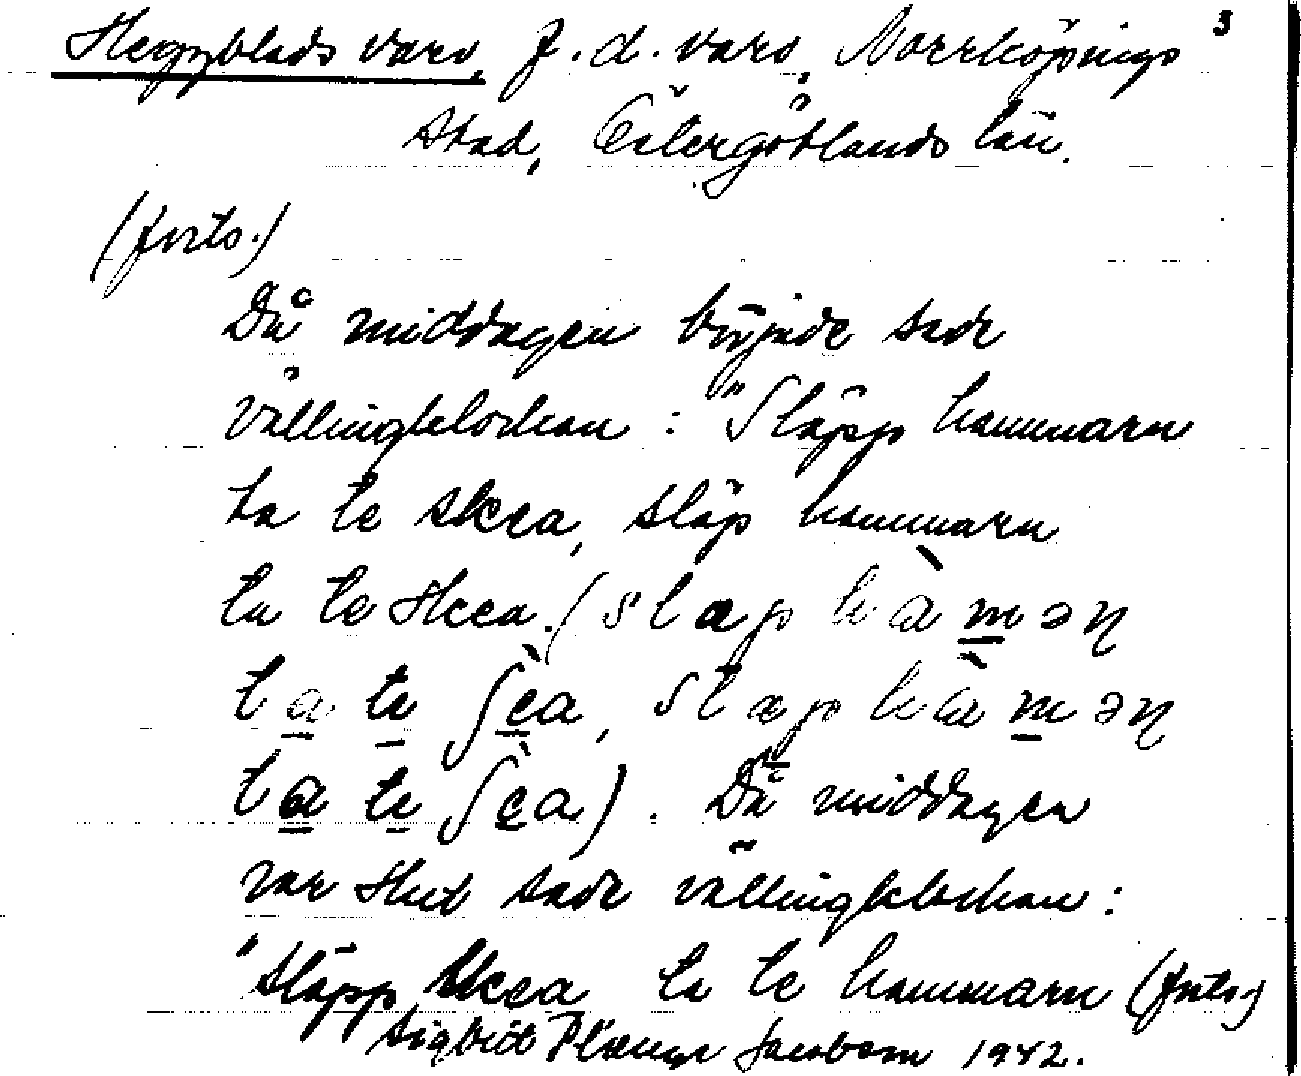 Heggblads varv, f.d. varv, Norrköpings 3
stad, Östergötlands län.
(forts.)
Då middagen började sade
vällingklockan: "Släpp hammarn
ta te skea, släp hammarn
ta te skea. (slæp hàmən
ta te ʃèa, slæp hàmən
ta te ʃèa). Då middagen
var slut sade vällingklockan:
"släpp skea ta te hammarn (forts.)
Sigbrit Jacobson 1942.